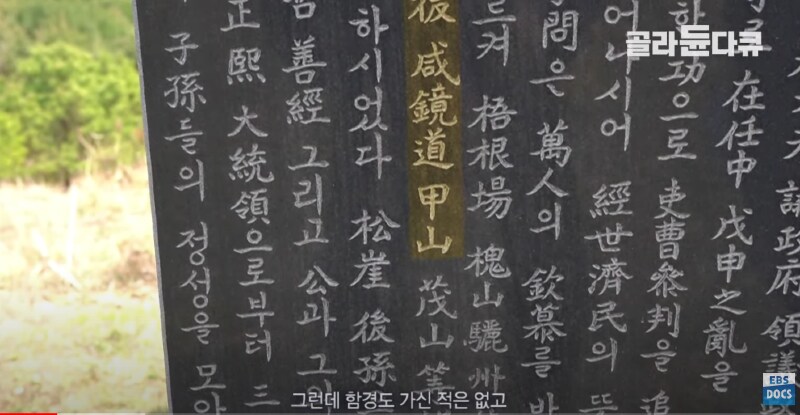 골라듄다큐
議政府領議
在任中 戊申之亂을
功으로 吏曹參判을 追
어나시어 經世濟民의 뜻
問은 萬人의 欽慕를 받
르켜 梧根場 槐山 驪州
後 咸鏡道甲山 茂山 等
하시었다 松崖 後孫
善經 그리고 公과 그
正熙 大統領으로부터 三
子孫들의 정성을 모아
그런데 함경도 가신 적은 없고
EBS
DOCS